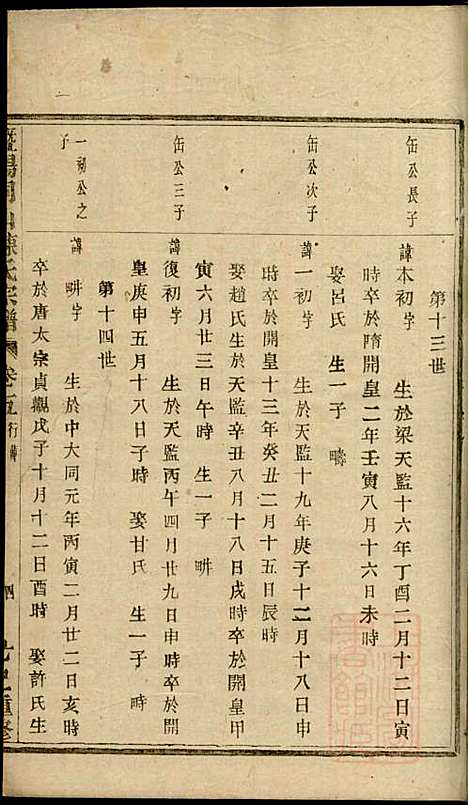 第十三世
缶公長子
諱本初字　生於梁天監十六年丁酉二月十二日寅
時卒於隋開皇二年壬寅八月十六日未時
娶呂氏　生一子　疇
缶公次子
諱一初字　生於天監十九年庚子十二月十八日申
時卒於開皇十三年癸丑二月十五日辰時
娶趙氏生於天監辛丑八月十八日戌時卒於開皇甲
寅六月廿三日午時　生一子　畊
缶公三子
諱復初字　生於天監丙午四月廿九日申時卒於開
皇庚申五月十八日子時　娶甘氏　生一子　時
第十四世
一初公之
子
諱畊字　生於中大同元年丙寅二月廿二日亥時
卒於唐太宗貞觀戊子十月十二日酉時　娶許氏生
暨陽 山陳氏宗譜 卷 行譜 四